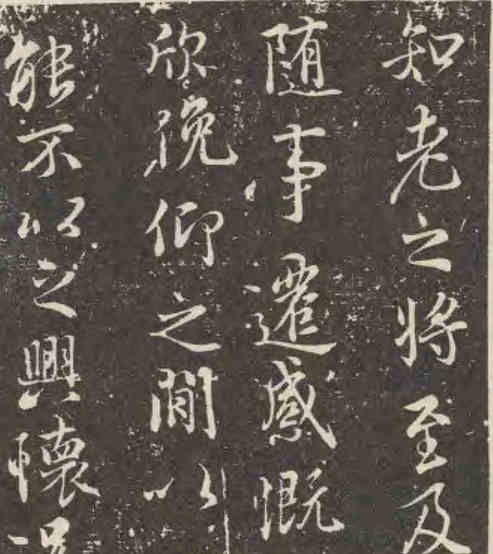 知老之將至及
隨事遷感慨
欣俛仰之間以
能不以之興懷